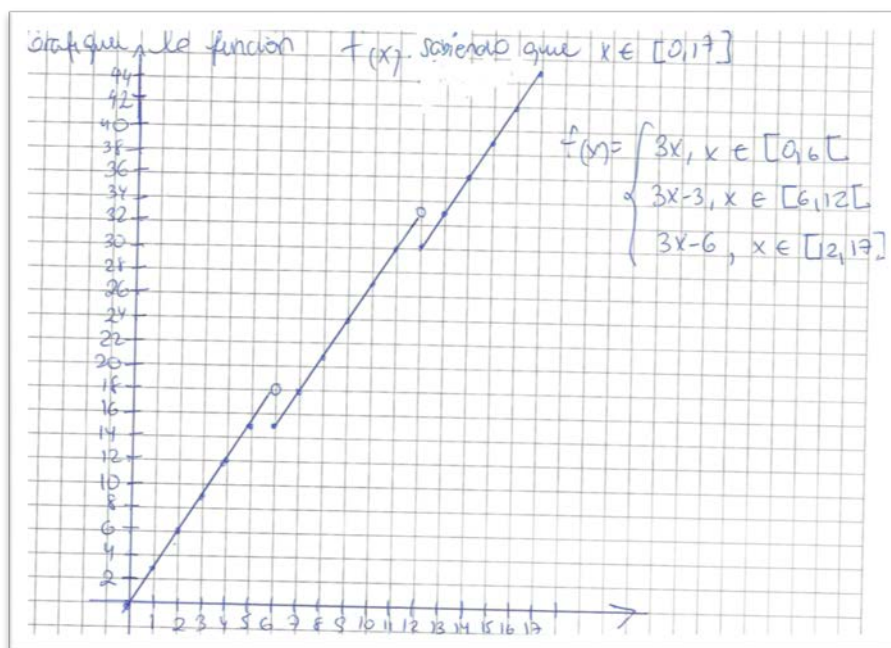 Grafique la función f(x) sabiendo que x ∈ [0,17]
f(x)= { 3x, x ∈ [0,6[
3x-3, x ∈ [6,12[
3x-6, x ∈ [12,17]
44
42
40
38
36
34
32
30
28
26
24
22
20
18
16
14
12
10
8
6
4
2
1 2 3 4 5 6 7 8 9 10 11 12 13 14 15 16 17